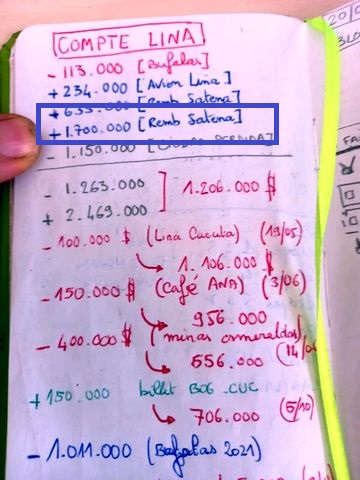 COMPTE LINA
- 113.000 [Bufalas]
+ 234.000 [Avion Lina]
+ 535.000 [Remb Satena]
+ 1.700.000 [Remb Satena]
- 1.150.000 [Ciudad PERDIDA]
- 1.263.000 ] 1.206.000 $
+ 2.469.000
- 100.000 $ (Lina Cucuta) (19/05)
1.106.000 $
- 150.000 $ (Café ANA) (3/06)
956.000
- 400.000 $ (minas esmeraldas)
556.000 (14/0
+ 150.000 billet BOG_CUC
706.000 (5/10)
- 1.011.000 (Bufalas 2021)
20/0
FA